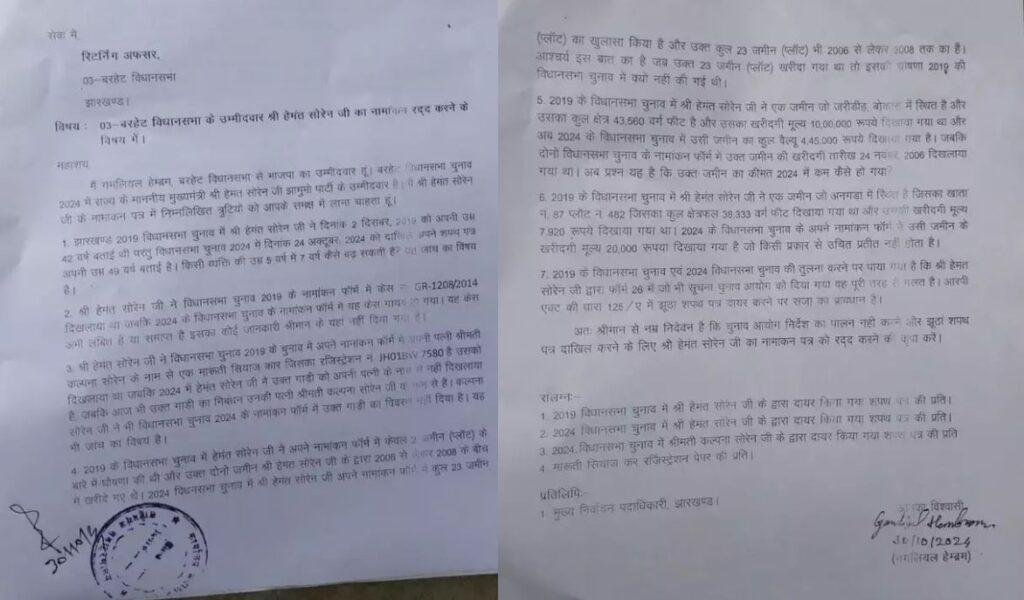 सेवा में,
रिटर्निंग अफसर,
03–बरहेट विधानसभा
झारखण्ड।
विषय : 03–बरहेट विधानसभा के उम्मीदवार श्री हेमंत सोरेन जी का नामांकन रदद् करने के
विषय में।
महाशय
में गमलियल हेम्ब्रम, बरहेट विधानसभा से भाजपा का उम्मीदवार हूं। बरहेट विधानसभा चुनाव
2024 में राज्य के माननीय मुख्यमंत्री श्री हेमंत सोरेन जी झामुमो पार्टी के उम्मीदवार है। मैं श्री हेमंत सोरेन
जी के नामांकन पत्र में निम्नलिखित त्रुटियों को आपके समक्ष में लाना चाहता हूं।
1. झारखण्ड 2019 विधानसभा चुनाव में श्री हेमंत सोरेन जी ने दिनांक 2 दिसंबर, 2019 को अपनी उम्र
42 वर्ष बताई थी परंतु विधानसभा चुनाव 2024 में दिनांक 24 अक्टूबर, 2024 को दाखिल अपने शपथ पत्र
अपनी उम्र 49 वर्ष बताई है। किसी व्यक्ति की उम्र 5 वर्ष में 7 वर्ष कैसे बढ़ सकती है? यह जांच का विषय
है।
2. श्री हेमंत सोरेन जी ने विधानसभा चुनाव 2019 के नामांकन फॉर्म में केस नं GR-1208/2014
दिखलाया था जबकि 2024 के विधानसभा चुनाव के नामांकन फॉर्म में यह केस गायब हो गया। यह केस
अभी लंबित है या समाप्त है इसका कोई जानकारी श्रीमान के यहां नहीं दिया गया है।
3. श्री हेमंत सोरेन जी ने विधानसभा चुनाव 2019 के चुनाव में अपने नामांकन फॉर्म में अपनी पत्नी श्रीमती
कल्पना सोरेन के नाम से एक मारूती सियाज कार जिसका रजिस्ट्रेशन नं JH01BW 7580 है उसको
दिखलाया था जबकि 2024 में हेमंत सोरेन जी ने उक्त गाड़ी को अपनी पत्नी के नाम से नहीं दिखलाया
है, जबकि आज भी उक्त गाड़ी का निबंधन उनकी पत्नी श्रीमती कल्पना सोरेन जी के नाम से है। कल्पना
सोरेन जी ने भी विधानसभा चुनाव 2024 के नामांकन फॉर्म में उक्त गाड़ी का विवरण नहीं दिया है। यह
भी जांच का विषय है।
4. 2019 के विधानसभा चुनाव में हेमंत सोरेन जी ने अपने नामांकन फॉर्म में केवल 2 जमीन (प्लॉट) के
बारे में घोषणा की थी और उक्त दोनो जमीन श्री हेमंत सोरेन जी के द्वारा 2006 से लेकर 2008 के बीच
में खरीदे गए थे। 2024 विधानसभा चुनाव में श्री हेमंत सोरेन जी अपने नामांकन फॉर्म में कुल 23 जमीन
30/10/24
(प्लॉट) का खुलासा किया है और उक्त कुल 23 जमीन (प्लॉट) भी 2006 से लेकर 2008 तक का है।
आश्चर्य इस बात का है जब उक्त 23 जमीन (प्लॉट) खरीदा गया था तो इसकी घोषणा 2019 की
विधानसभा चुनाव में क्यों नहीं की गई थी।
5. 2019 के विधानसभा चुनाव में श्री हेमंत सोरेन जी ने एक जमीन जो जरीडीह, बोकारो में स्थित है और
उसका कुल क्षेत्र 43,560 वर्ग फीट है और उसका खरीदगी मूल्य 10,00,000 रूपये दिखाया गया था और
अब 2024 के विधानसभा चुनाव में उसी जमीन का कुल वैल्यू 4,45,000 रूपये दिखाया गया है। जबकि
दोनो विधानसभा चुनाव के नामांकन फॉर्म में उक्त जमीन की खरीदगी तारीख 24 नवंबर, 2006 दिखलाया
गया था। अब प्रश्न यह है कि उक्त जमीन का कीमत 2024 में कम कैसे हो गया?
6. 2019 के विधानसभा चुनाव में श्री हेमंत सोरेन जी ने एक जमीन जो अनगडा में स्थित है जिसका खाता
नं. 87 प्लोट नं. 482 जिसका कुल क्षेत्रफल 38,333 वर्ग फीट दिखाया गया था और उसकी खरीदगी मूल्य
7,920 रूपये दिखाया गया था। 2024 के विधानसभा चुनाव के अपने नामांकन फॉर्म में उसी जमीन के
खरीदगी मूल्य 20,000 रूपया दिखाया गया है जो किसी प्रकार से उचित प्रतीत नहीं होता है।
7. 2019 के विधानसभा चुनाव एवं 2024 विधानसभा चुनाव की तुलना करने पर पाया गया है कि श्री हेमंत
सोरेन जी द्वारा फॉर्म 26 में जो भी सूचना चुनाव आयोग को दिया गया वह पूरी तरह से गलत है। आरपी
एक्ट की धारा 125/ए में झूठा शपथ पत्र दायर करने पर सजा का प्रावधान है।
अतः श्रीमान से नम्र निवेदन है कि चुनाव आयोग निर्देश का पालन नही करने और झूठा शपथ
पत्र दाखिल करने के लिए श्री हेमंत सोरेन जी का नामांकन पत्र को रदद् करने की कृपा करें।
संलग्नः–
1. 2019 विधानसभा चुनाव में श्री हेमंत सोरेन जी के द्वारा दायर किया गया शपथ पत्र की प्रति।
2. 2024 विधानसभा चुनाव में श्री हेमंत सोरेन जी के द्वारा दायर किया गया शपथ पत्र की प्रति।
3. 2024 विधानसभा चुनाव में श्रीमती कल्पना सोरेन जी के द्वारा दायर किया गया शपथ पत्र की प्रति
4. मारूती सियाज कर रजिस्ट्रेशन पेपर की प्रति।
प्रतिलिपिः–
1. मुख्य निर्वाचन पदाधिकारी, झारखण्ड।
आपका विश्वासी
Gamliyel Hembrom
30/10/2024
(गमलियल हेम्ब्रम)